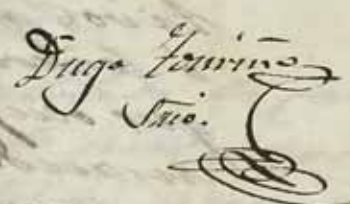 Dugo Touriño
Srio.